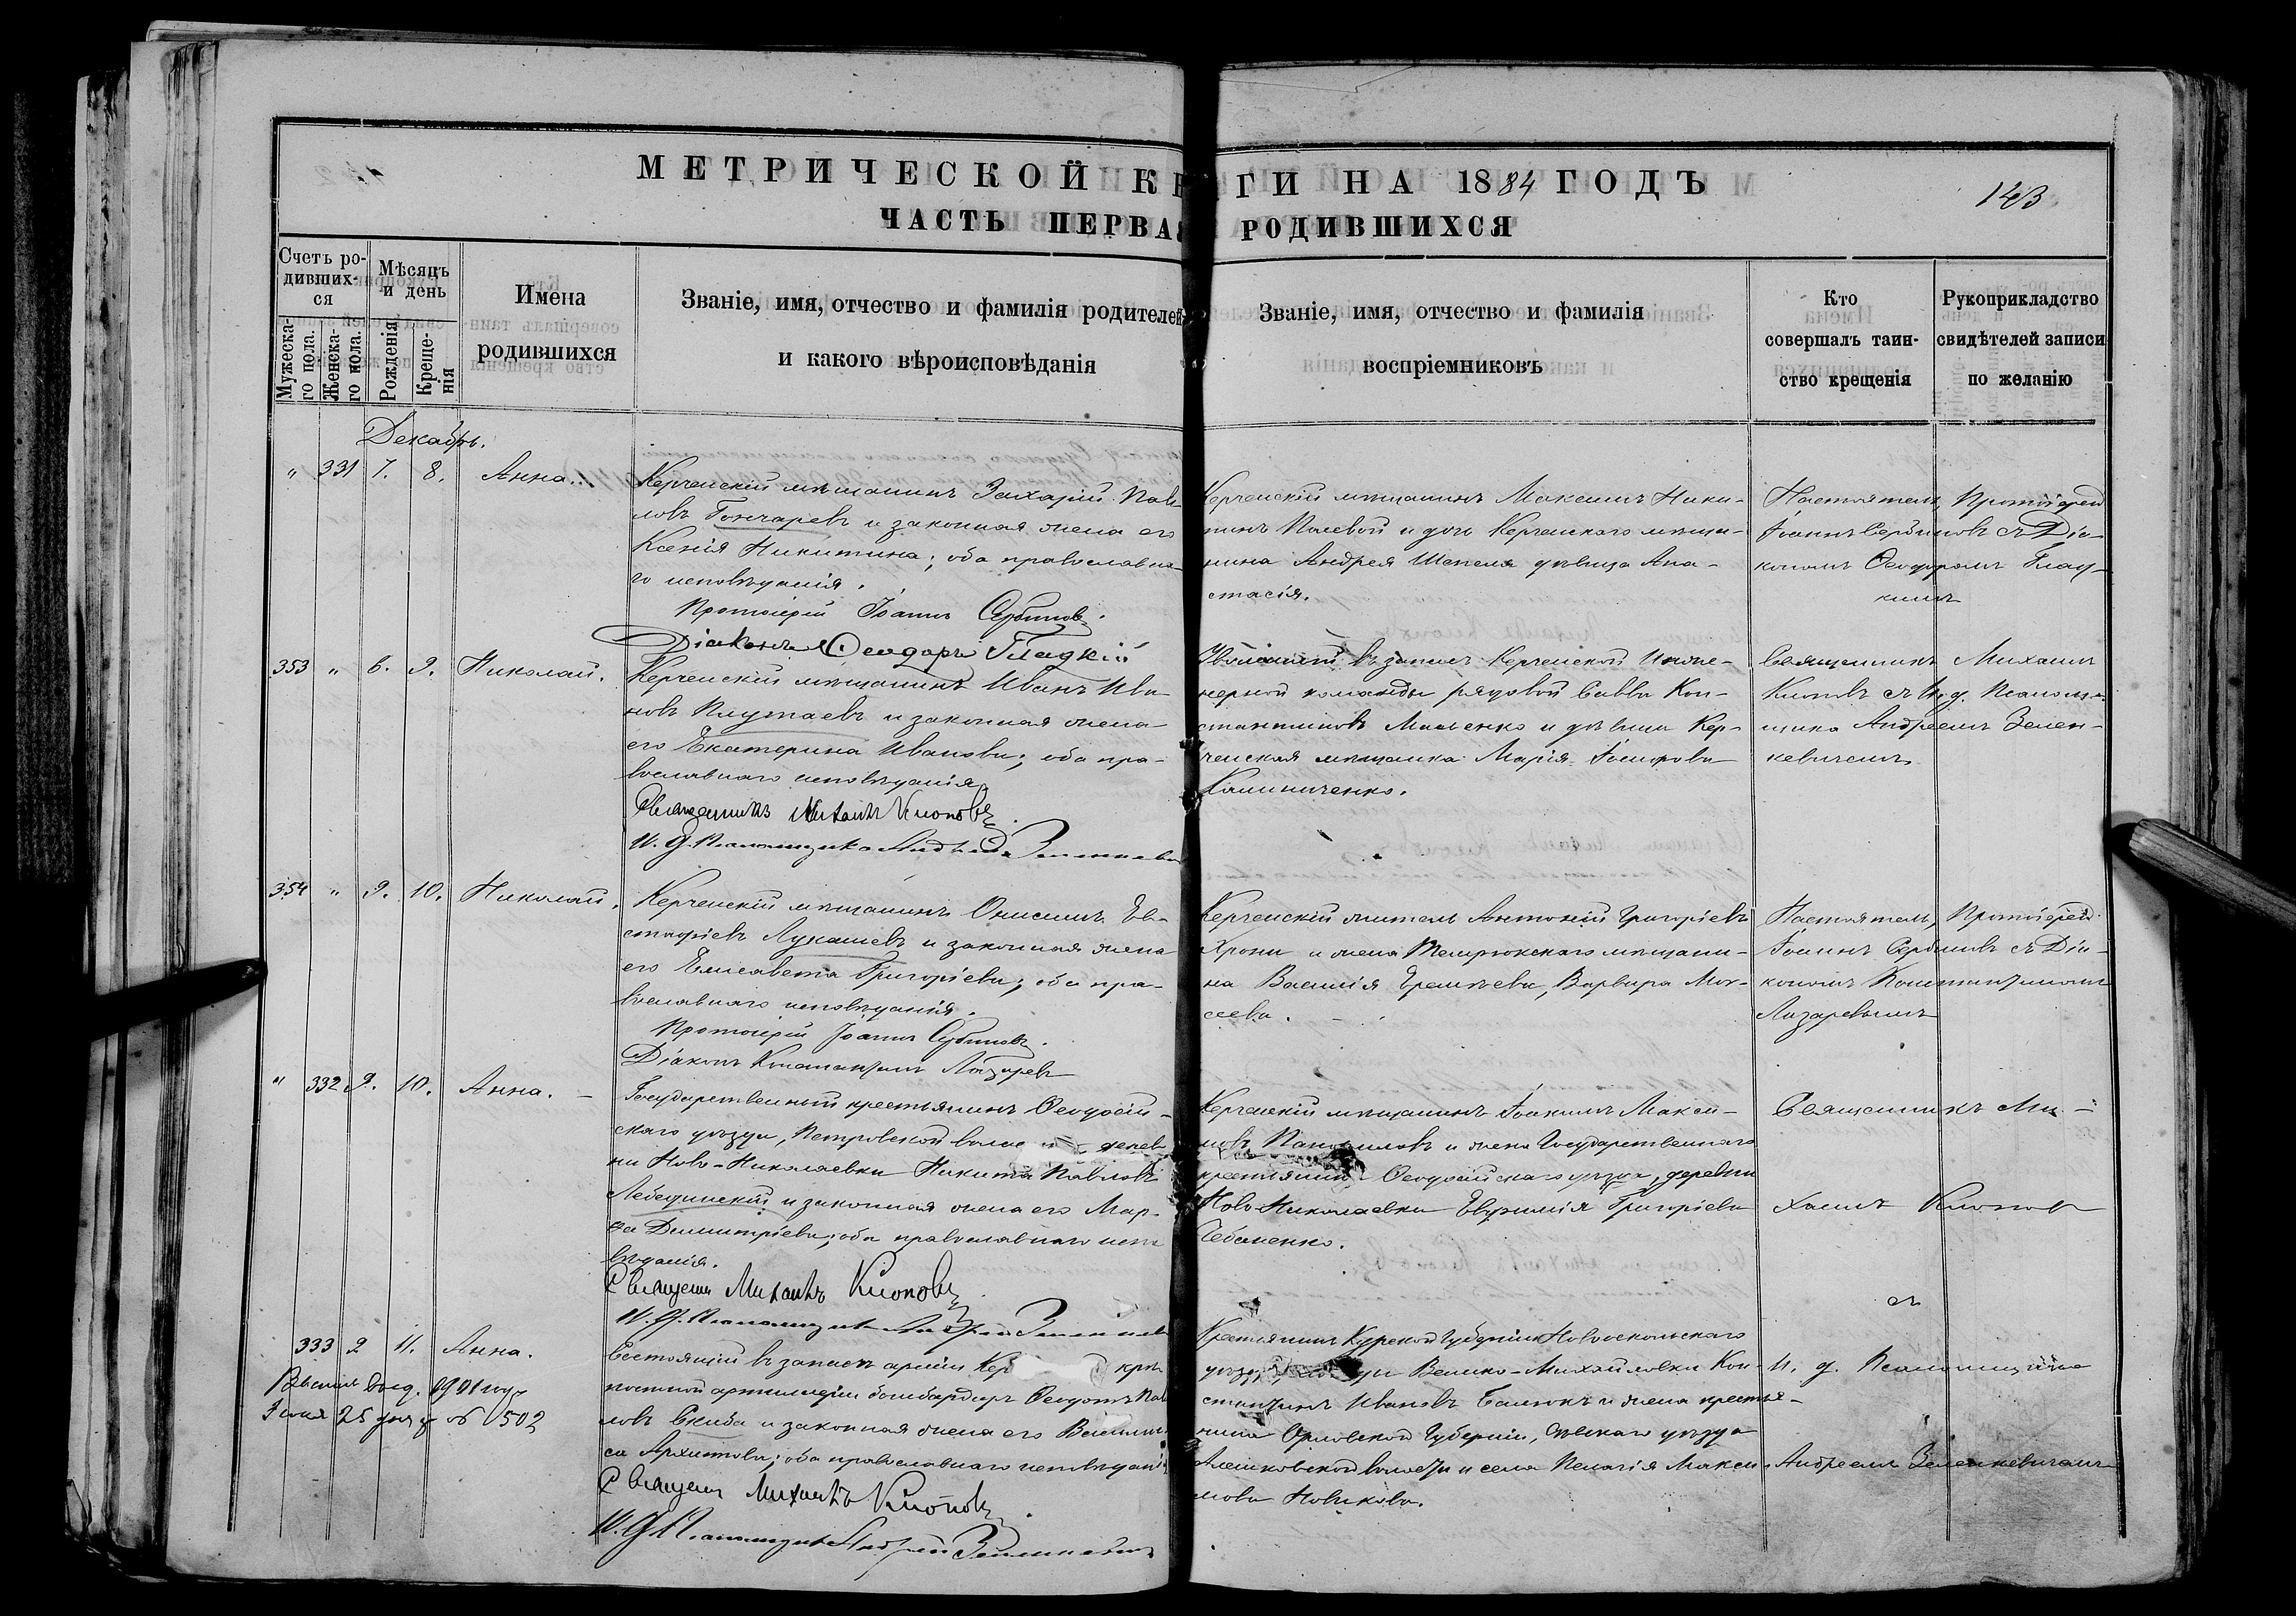 МЕТРИЧЕСКОЙ КН ГИ НА 1884 ГОДЪ
143
ЧАСТЬ ПЕРВАЯ РОДИВШИХСЯ
Счетъ ро-
дивших-
ся
Мужеска-
го пола.
Женска-
го пола.
Мѣсяцъ
и день
Рожденія
Креще-
нія
Имена
родившихся
Званіе, имя, отчество и фамилія родителей
и какого вѣроисповѣданія
Званіе, имя, отчество и фамилія
воспріемниковъ
Кто
совершалъ таин-
ство крещенія
Рукоприкладство
свидѣтелей записи
по желанію
Декабрь.
" 331 7. 8. Анна.
Керченскій мѣщанинъ Захарій Пав-
ловъ Гончаревъ и законная жена его
Ксенія Никитина; оба православна-
го исповѣданія.
Протоіерей Іоаннъ Сербиновъ.
Діаконъ Ѳеодоръ Гладкій
Керченскій мѣщанинъ Максимъ Ники-
тинъ Полевой и дочь Керченскаго мѣща-
нина Андрея Шепеля дѣвица Ана-
стасія.
Настоятель, Протоіерей
Іоаннъ Сербиновъ съ Діа-
кономъ Ѳеодоромъ Глад-
кимъ
353 " 6. 9. Николай.
Керченскій мѣщанинъ Иванъ Ива-
новъ Плутаевъ и законная жена
его Екатерина Иванова; оба пра-
вославнаго исповѣданія.
Священникъ Михаилъ Клоповъ.
И. д. Псаломщика Андрей Зеленкевичъ
въ запасъ Керченской Инже-
нерной команды рядовой Савва Кон-
стантиновъ и дѣвица Кер-
ченская мѣщанка Марія
Калиниченко.
Священникъ Михаилъ
Клоповъ съ И. д. Псалом-
щика Андреемъ Зелен-
кевичемъ
354 " 9. 10. Николай.
Керченскій мѣщанинъ Онисимъ Ев-
стафіевъ Лукашевъ и законная жена
его Елисавета Григоріева; оба пра-
вославнаго исповѣданія.
Протоіерей Іоаннъ Сербиновъ.
Діаконъ Константинъ Лазаревъ
Керченскій житель Антоній Григоріевъ
Хрони и жена Темрюкскаго мѣщани-
на Василія Еремѣева, Варвара Мои-
сеева.
Настоятель, Протоіерей
Іоаннъ Сербиновъ съ Діа-
кономъ Константиномъ
Лазаревымъ
" 332 9. 10. Анна.
Государственный крестьянинъ Ѳеодосій-
скаго уѣзда, Петровской волос дерев-
ни Ново-Николаевки Никита Павловъ
Лебединскій и законная жена его Мар-
ѳа Димитріева; оба православнаго испо
вѣданія.
Священ Михаилъ Клоповъ.
И. д. Псаломщика Андрей Зеленкев
Керченскій мѣщанинъ Іоакимъ Макси-
мовъ и жена Государственнаго
крестьянина Ѳеодосійскаго уѣзда, деревни
Ново-Николаевки Евфимія Григоріева
Священникъ Ми-
хаилъ Клоповъ
съ
333 9 11. Анна.
1901 году
25 дня
502
Состоящій въ запасѣ арміи Кер крѣ
постной артиллеріи бомбардиръ Ѳеодотъ Пав
ловъ Скиба и законная жена его Василис-
са Архипова; оба православнаго исповѣданія
Священ Михаилъ Клоповъ.
И. д. Псаломщика Андрей Зеленкевичъ
Крестьянинъ Курской Губерніи Новооскольскаго
уѣзда, Велико-Михайловки Кон-
стантинъ Ивановъ и жена крестья-
нина Орловской Губерніи, Сѣвскаго уѣзда
Алешковской волости и села Пелагія Макси-
мова Новикова.
И. д. Псаломщика
Андреемъ Зеленкевичемъ